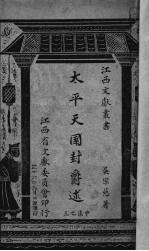 江西文獻叢書
吳宗慈著
太平天国封爵述
江西省文獻委員會印行